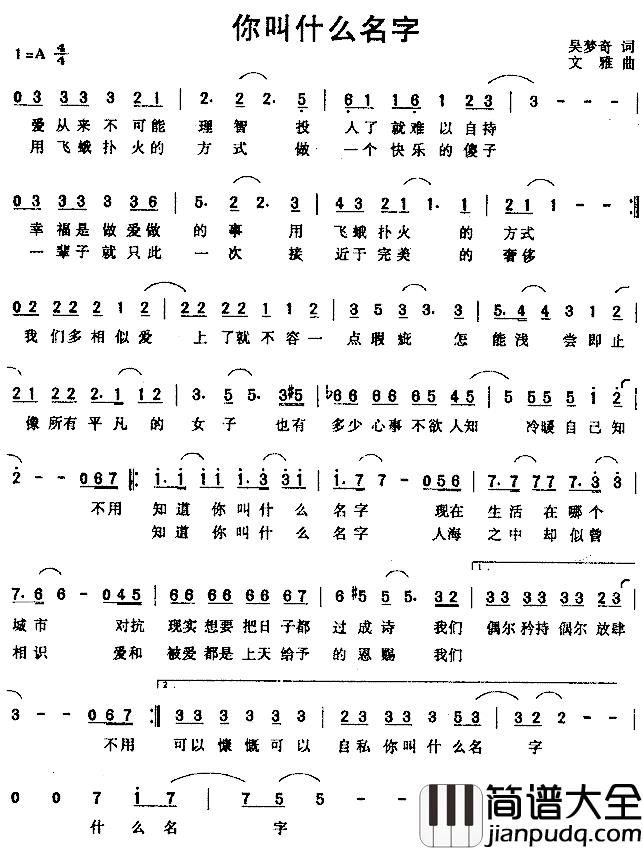 你叫什么名字
1=A 4/4
吴梦奇 词
文 雅 曲
03 33 3 21 | 2. 2 2. 5 | 61 16 1 23 | 3 - - - |
爱从来不可能 理智 投 人了就难以自持
用飞蛾扑火的 方式 做 一个快乐的傻子
03 33 33 36 | 5. 2 2. 3 | 43 21 1. 1 | 2 - - - :||
幸福是做爱做 的事 用 飞蛾扑火 的 方式
一辈子就只此 一次 接 近于完美 的 奢侈
02 22 21 2 | 2 22 22 11 2 | 3 5 3 3. 3 | 5. 4 4 31 2 |
我们多相似爱 上了就不容一 点瑕疵 怎 能浅 尝即止
21 22 2. 1 12 | 3. 5 5. 3#5 | b66 66 65 45 | 5 55 5 51 2 |
像所有平凡 的 女子 也有 多少心事不欲人知 冷暖自己知
2 - - 067 ||: 1. 1 11 1. 3 31 | 1. 7 7 - 056 | 7. 7 77 7. 3 3 |
不用 知道 你叫什么 名字 现在 生活 在哪个
知道 你叫什么 名字 人海 之中 却似曾
7. 6 6 - 045 | 66 66 66 67 | 6 #5 5. 32 | 33 33 33 23 |
城市 对抗 现实想要把日子都 过成诗 我们 偶尔矜持偶尔放肆
相识 爱和 被爱都是上天给予 的恩赐 我们
1.
3 - - 067 :|| 33 33 33 3 | 23 33 3 53 | 3 2 2 - |
2.
不用 可以慷慨可以 自私你叫什么名 字
0 0 7 1 7 | 7 5 5 - -
什么名 字
简谱大全
jianpudq.com